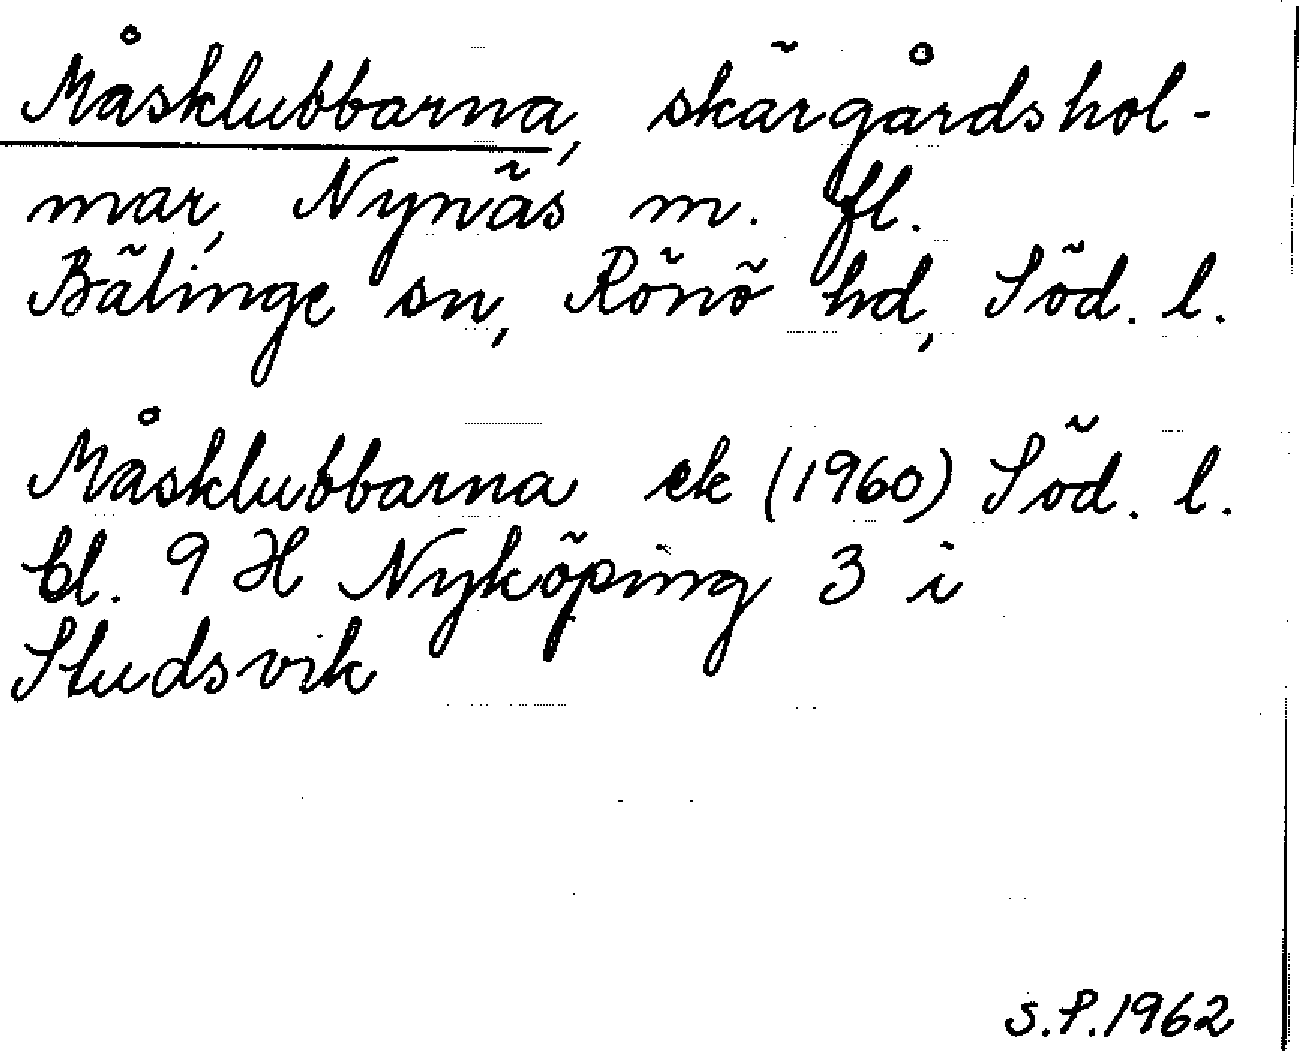 Måsklubbarna, skärgårdshol-
mar, Nynäs m. fl.
Bälinge sn, Rönö hd, Söd. l.
Måsklubbarna ek (1960) Söd. l.
bl. 9 H Nyköping 3 i
Studsvik
S.P. 1962